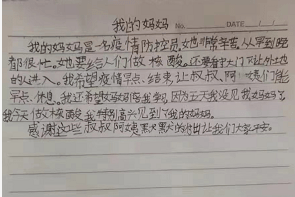 我的妈妈 No. DATE / /
我的妈妈是一名疫情防控员,她非常辛苦,从早到晚
都很忙。她要给人们做核酸,还要看大门不让外地
的人进入。我希望疫情早点结束,让叔叔、阿姨们能
早点休息。我还希望妈妈别骂我学,因为五天我没见我妈妈了
我今天做核酸我特别高兴见到了我的妈妈。
感谢这些叔叔阿姨默默的付出让我们大家平安。